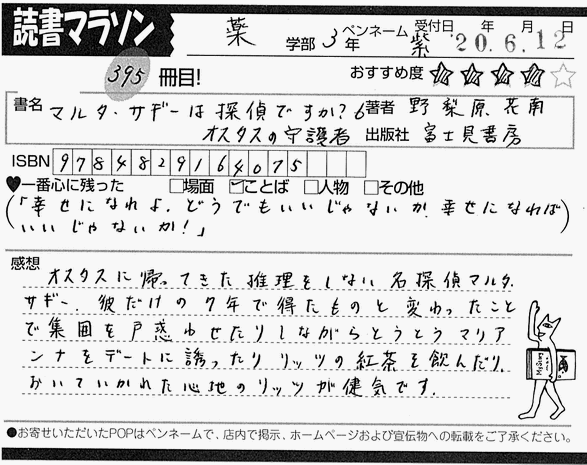 読書マラソン
薬 学部 3年 ペンネーム 紫 受付日 20.6.12 年 月 日
395 冊目!
おすすめ度 ★★★★☆
書名 マルタ・サギーは探偵ですか?6 著者 野梨原 花南
オスタスの守護者 出版社 富士見書房
ISBN 9784829164075
♥一番心に残った □場面 ☑ことば □人物 □その他
(「幸せになれよ、どうでもいいじゃないか、幸せになれば
いいじゃないか!」)
感想
オスタスに帰ってきた推理をしない名探偵マルタ・
サギー、彼だけの7年で得たものと変わったこと
で集団を戸惑わせたりしながらとうとうマリア
ンナをデートに誘ったりリッツの紅茶を飲んだり。
おいていかれた心地のリッツが健気です。
●お寄せいただいたPOPはペンネームで、店内で掲示、ホームページおよび宣伝物への転載をご了承ください。